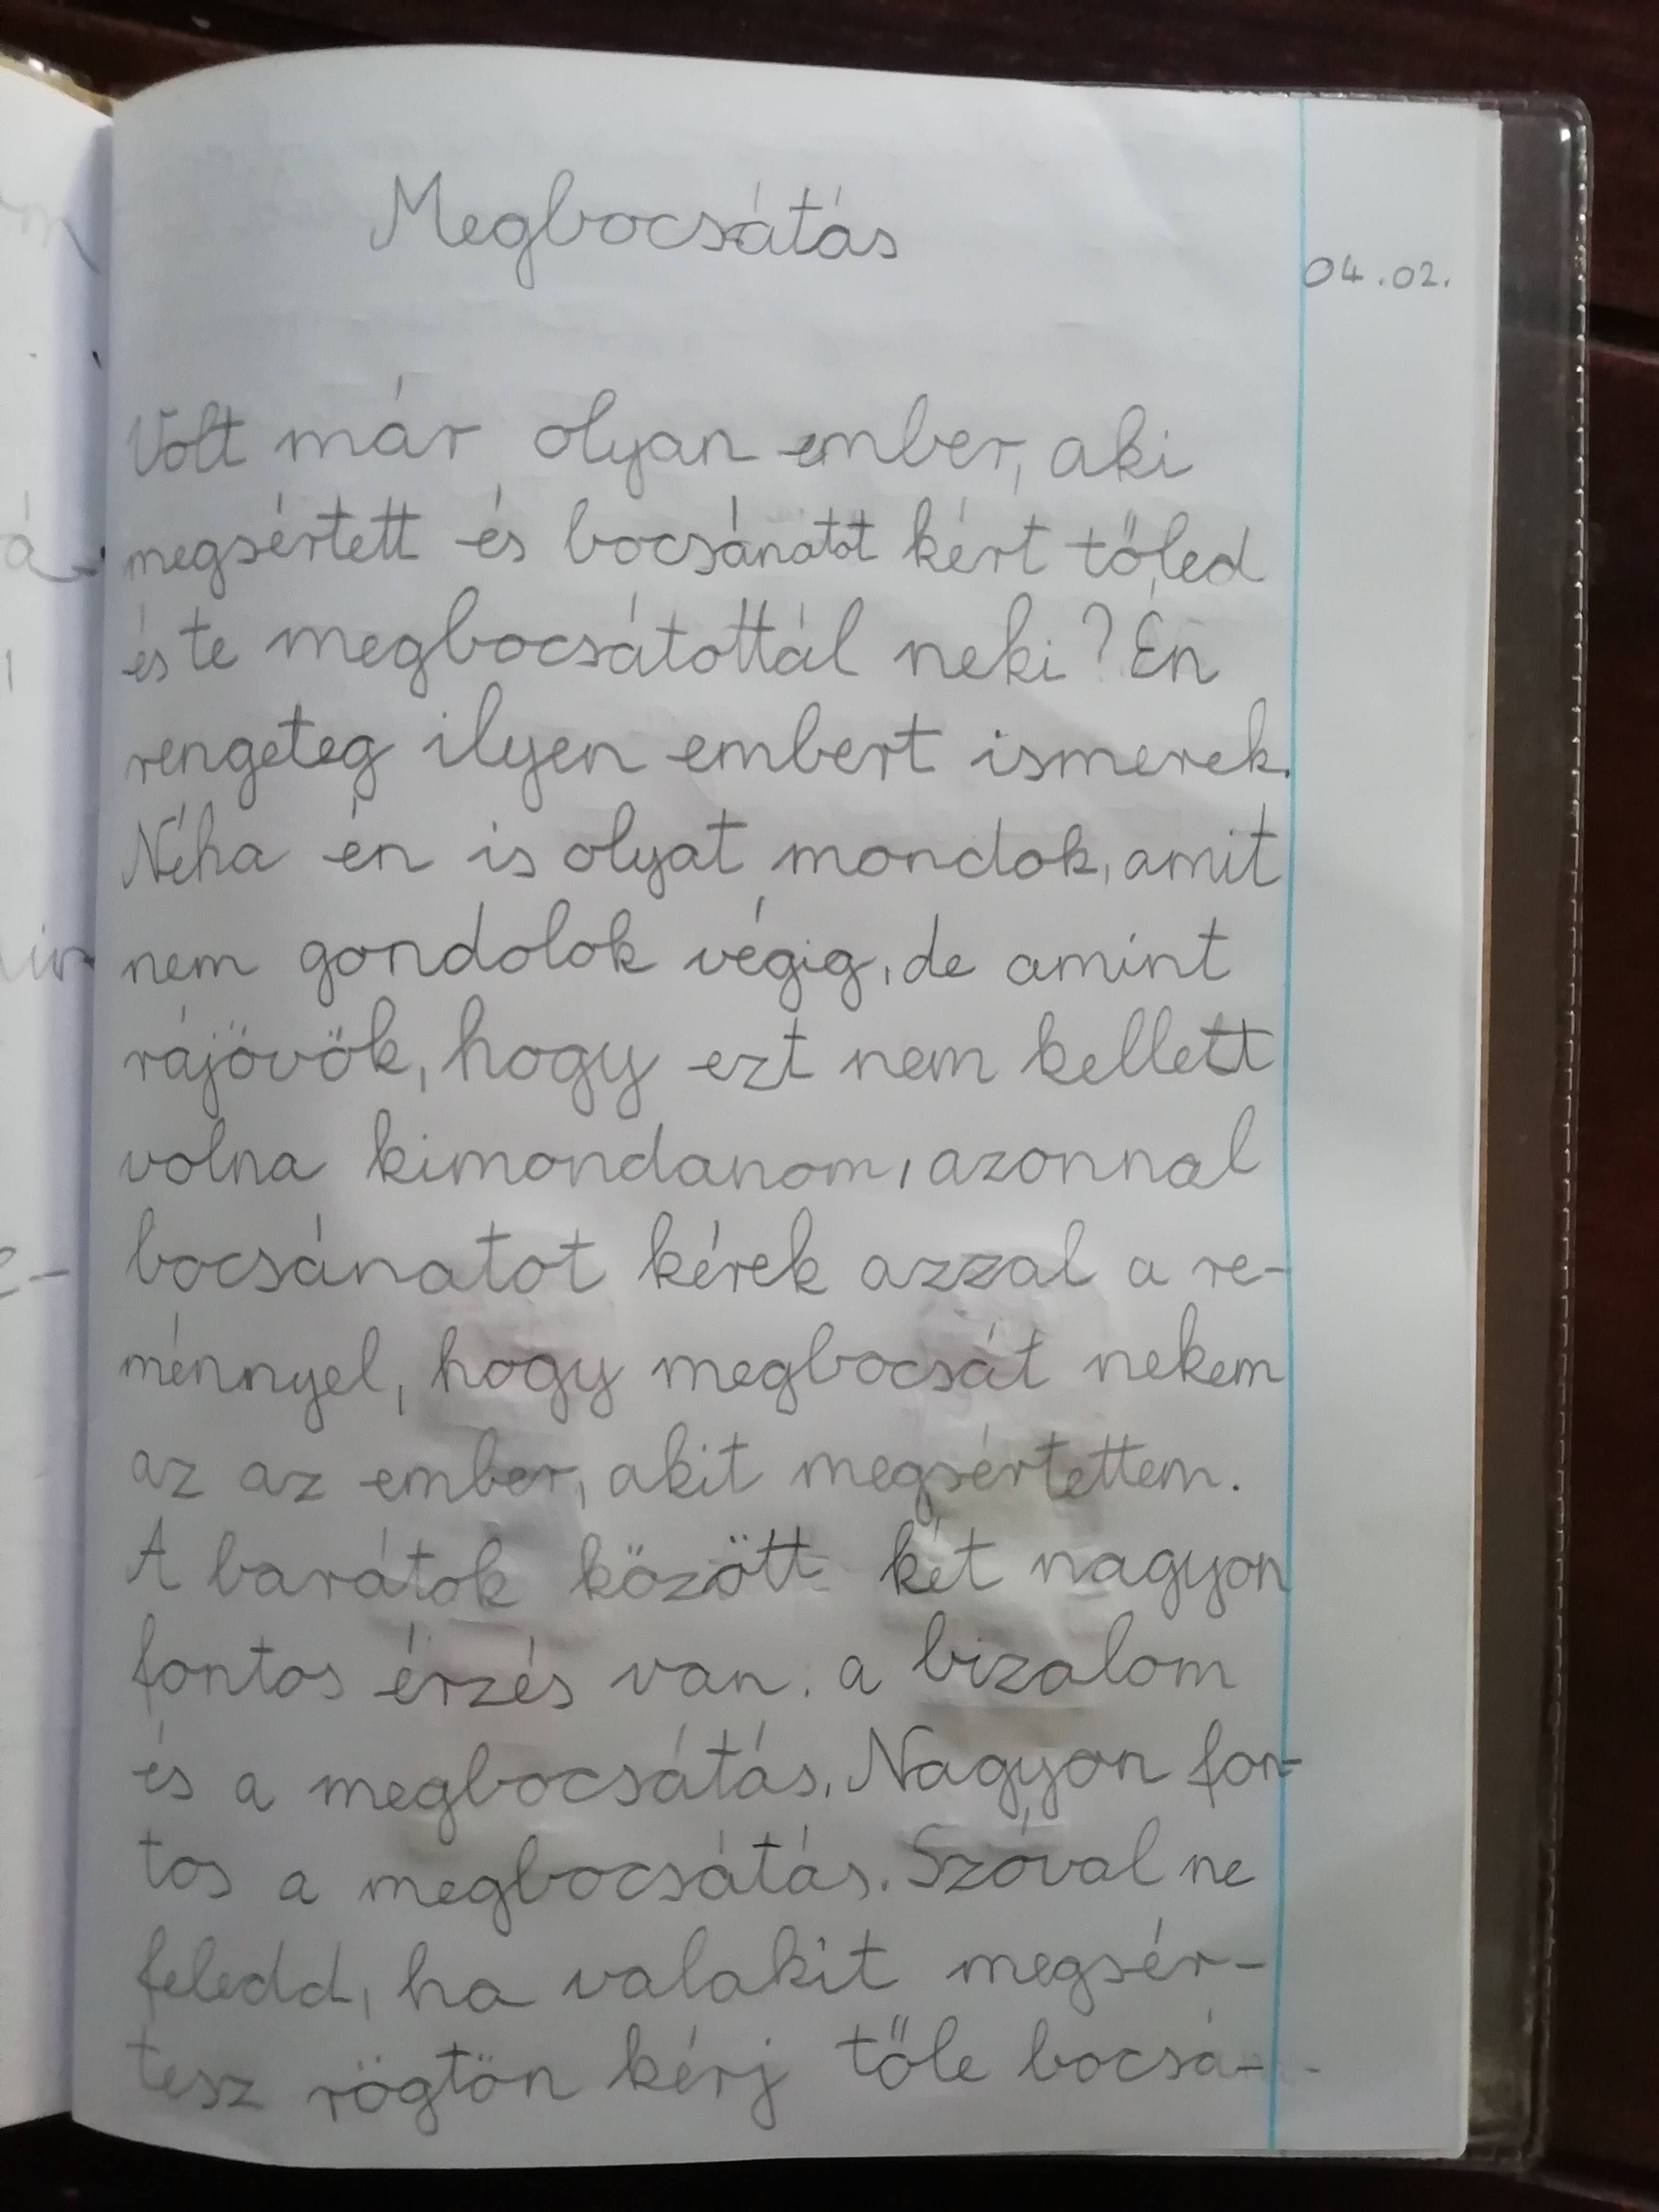 Megbocsátás
04.02.
Volt már olyan ember, aki
megsértett és bocsánatot kért tőled
és te megbocsátottál neki? Én
rengeteg ilyen embert ismerek.
Néha én is olyat mondok, amit
nem gondolok végig, de amint
rájövök, hogy ezt nem kellett
volna kimondanom, azonnal
bocsánatot kérek azzal a re-
ménnyel, hogy megbocsát nekem
az az ember, akit megsértettem.
A barátok között két nagyon
fontos érzés van: a bizalom
és a megbocsátás. Nagyon fon-
tos a megbocsátás. Szóval ne
feledd, ha valakit megsér-
tesz rögtön kérj tőle bocsá-